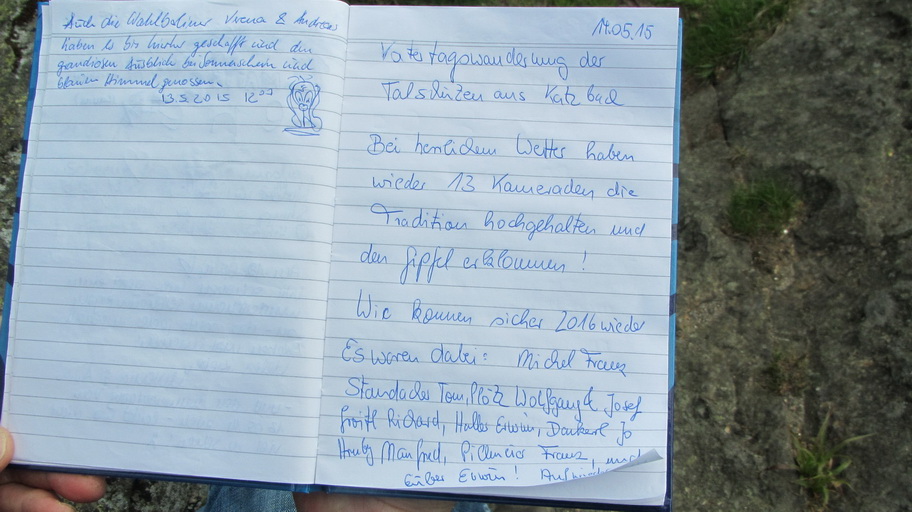 Auch die Wahlberliner Verena & Andreas
haben es bis hierher geschafft und den
grandiosen Ausblick bei Sonnenschein und
blauem Himmel genossen.
13.5.2015 12⁰⁰
14.05.15
Vatertagswanderung der
Talschützen aus Katzbach
Bei herrlichem Wetter haben
wieder 13 Kameraden die
Tradition hochgehalten und
den Gipfel erklommen!
Wir kommen sicher 2016 wieder
Es waren dabei: Michel Franz
Tom, Plötz Wolfgang & Josef
Richard, Haller Erwin, Dankerl Jo
Manfred, Franz, und
Erwin!